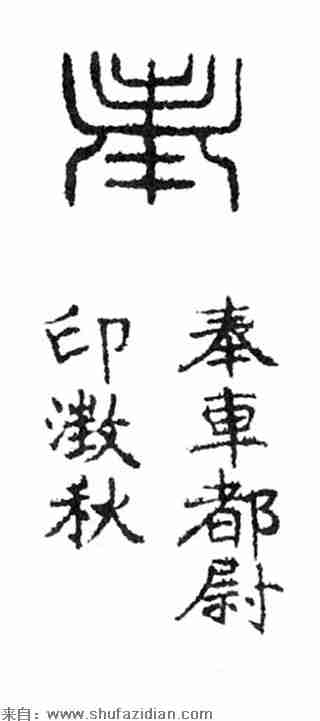 奉
奉車都尉
印澂秋
来自：www.shufazidian.com